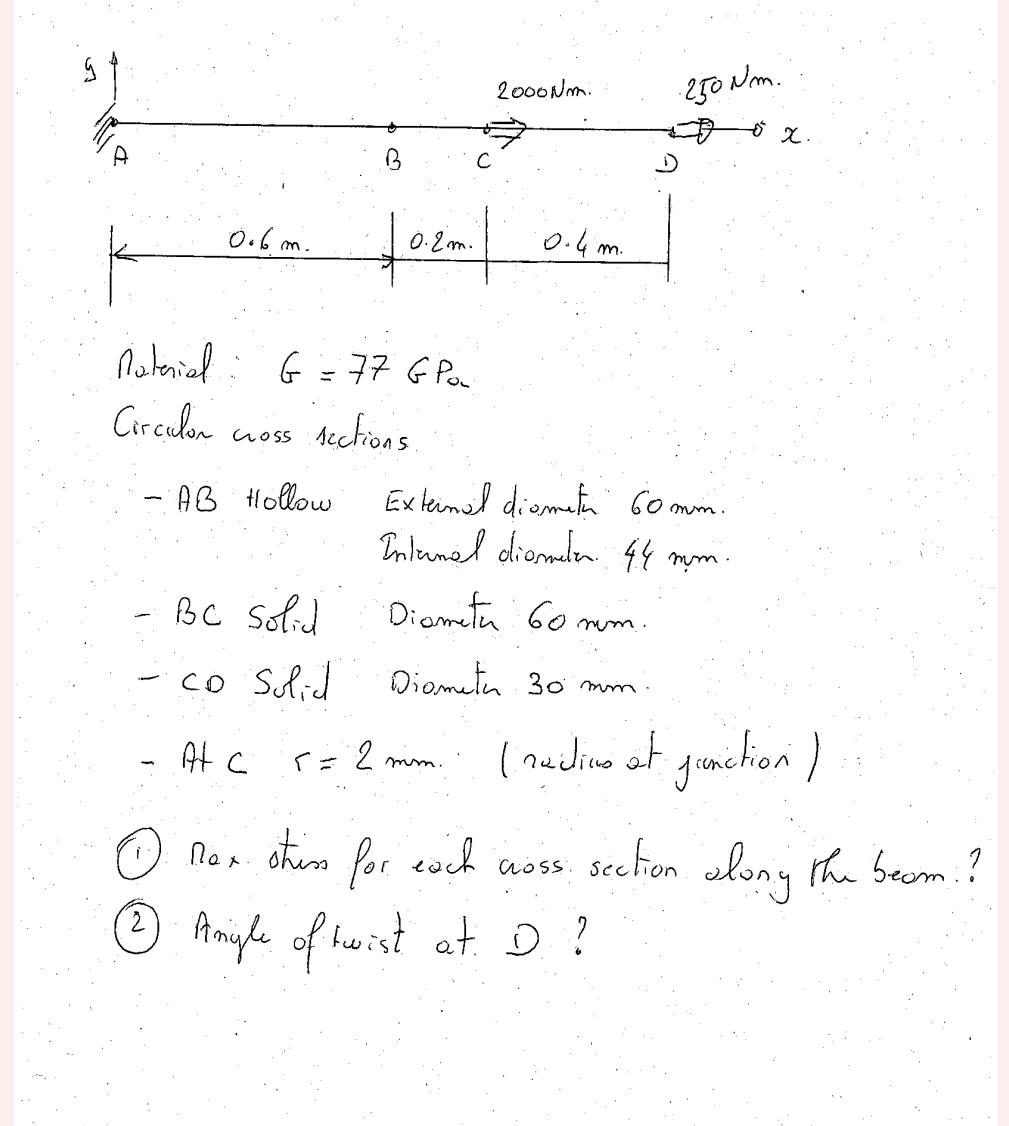 y
2000Nm.
250 Nm.
x.
A
B
C
D
0.6 m.
0.2m.
0.4 m.
Material: G = 77 GPa
Circular cross sections
- AB Hollow External diameter 60 mm.
Internal diameter. 44 mm.
- BC Solid Diameter 60 mm.
- CD Solid Diameter 30 mm.
- At C r = 2 mm. (radius at junction)
① Max stress for each cross section along the beam.?
② Angle of twist at D ?